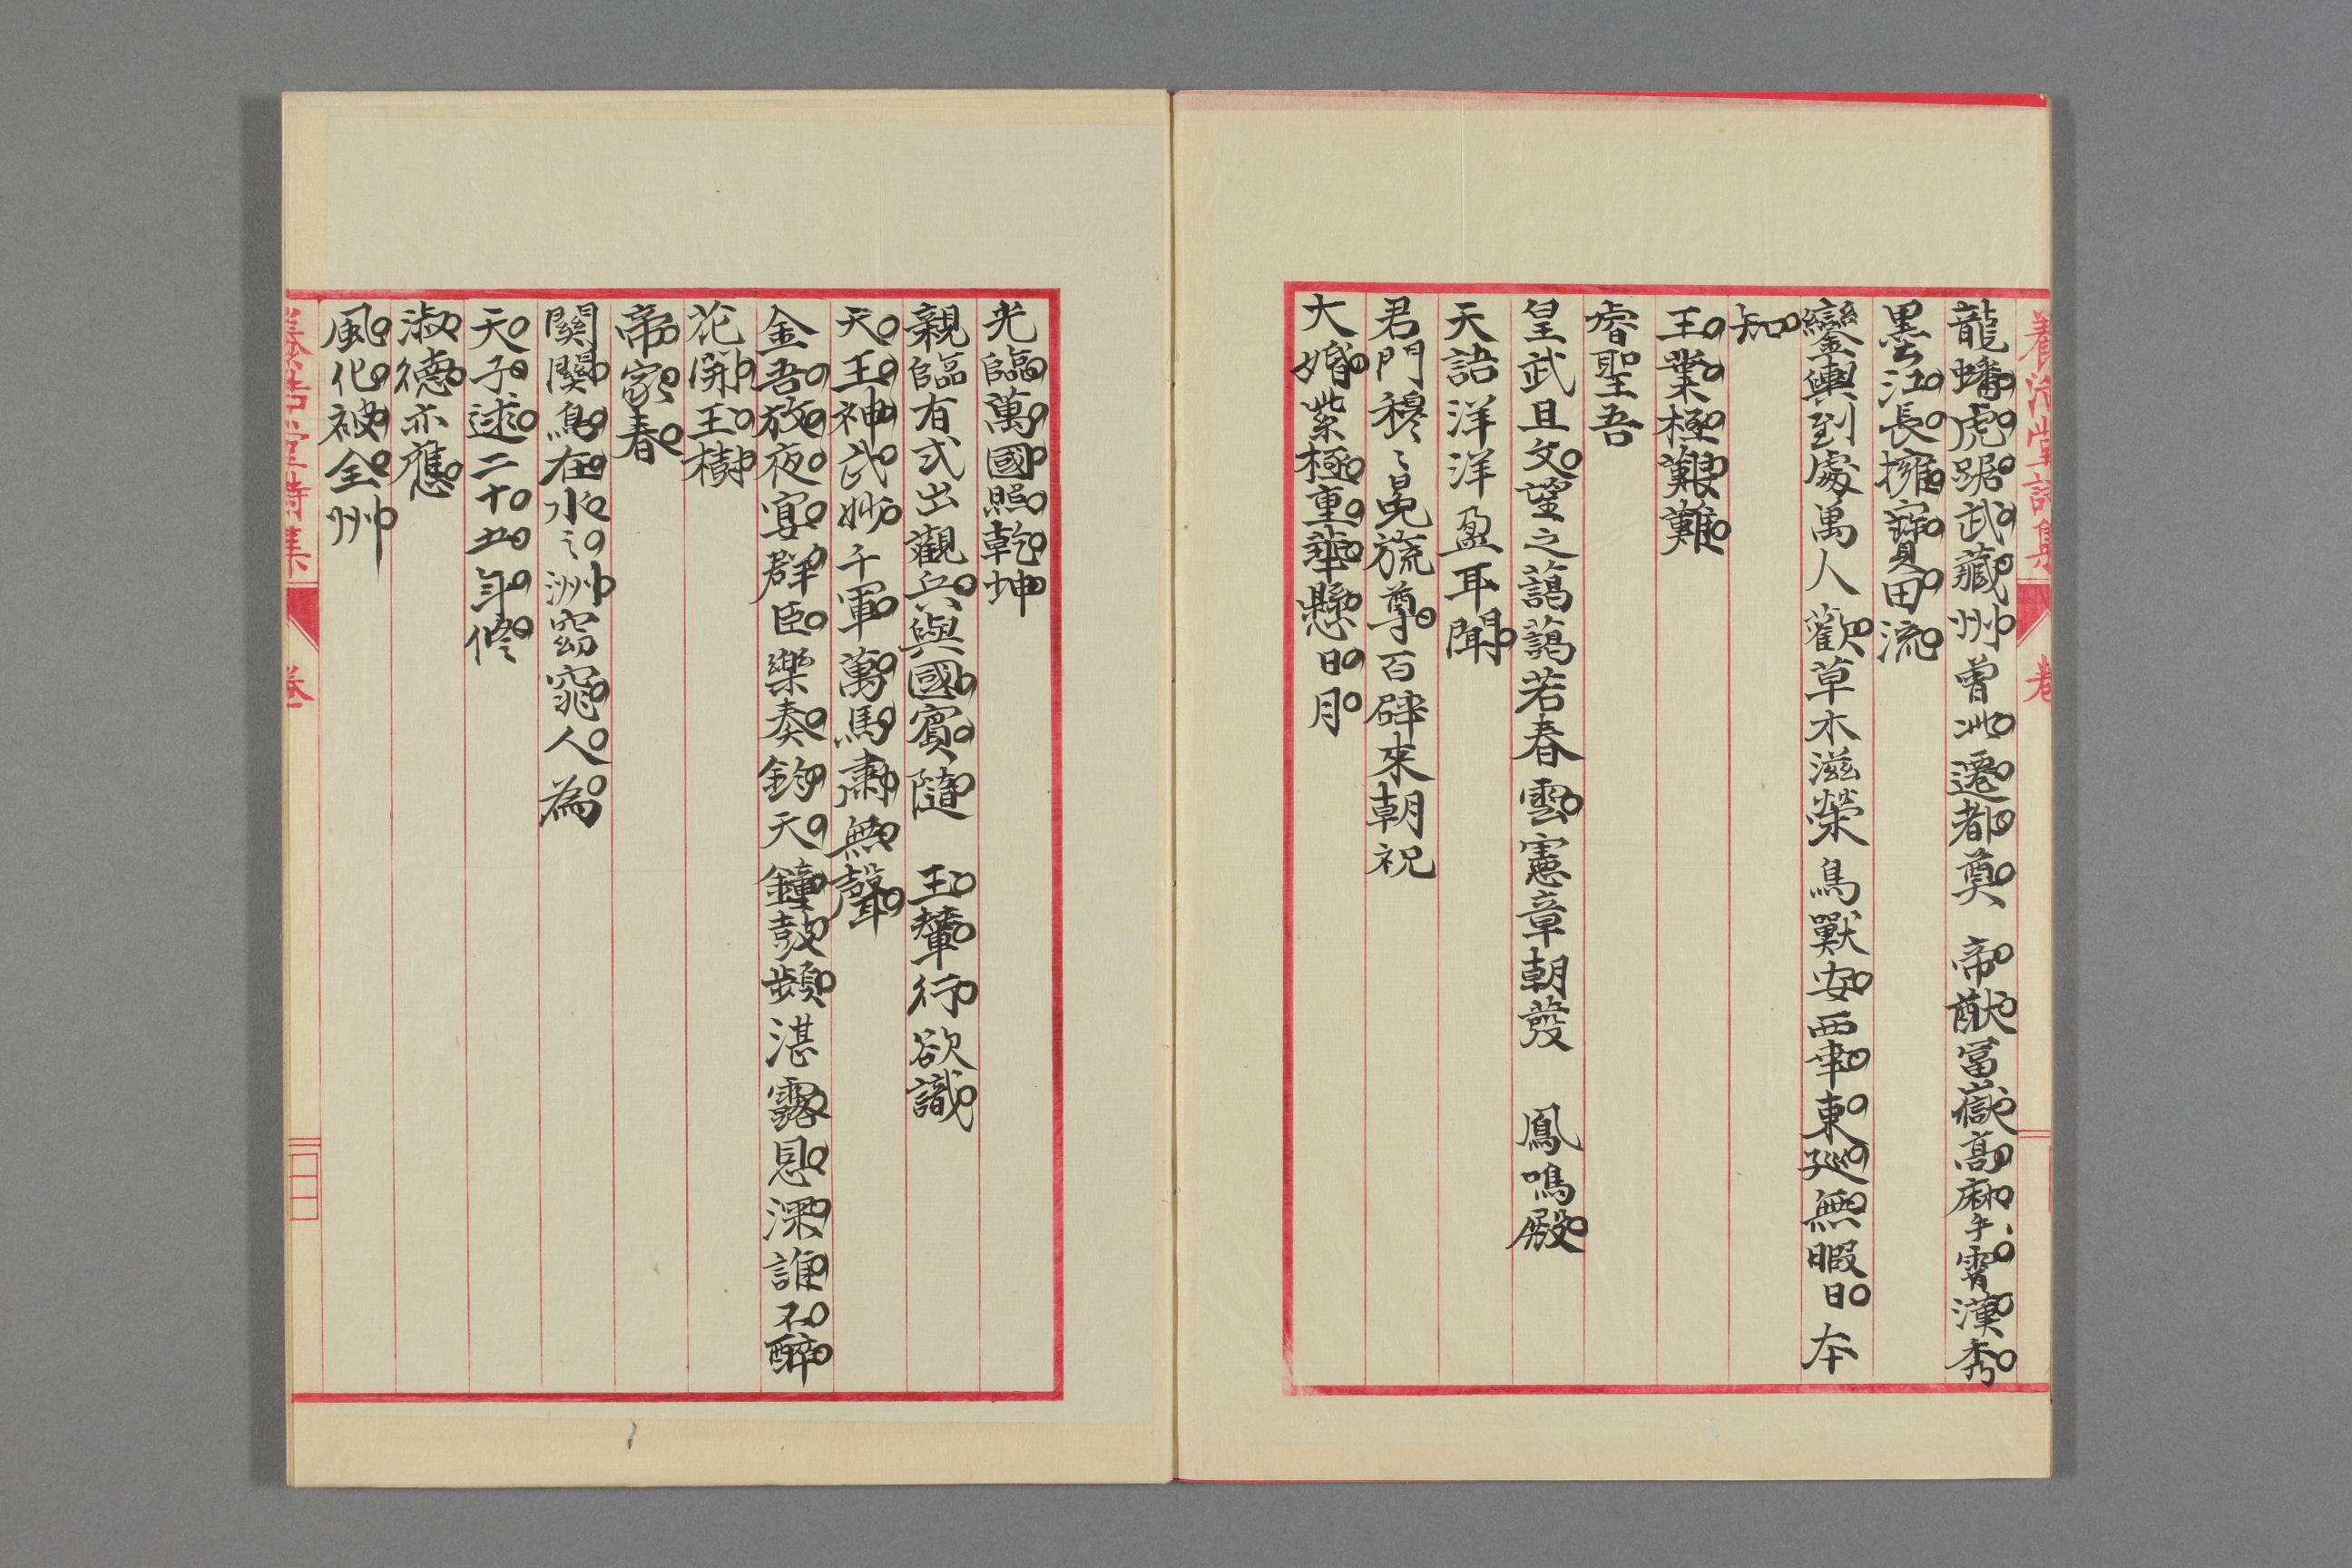 龍蟠虎踞武藏州曾此遷都奠　帝猷富嶽高摩霄漢秀
墨江長擁寶田流
鑾輿到處萬人歡草木滋榮鳥獸安西幸東巡無暇日本
知
王業極艱難
睿聖吾
皇武且文望之藹藹若春雲憲章朝發　鳳鳴殿
天語洋洋盈耳聞
君門穆〻冕旒尊百辟來朝祝
大婚紫極重華懸日月
光臨萬國照乾坤
親臨有式出觀兵與國賓隨　王輦行欲識
天王神武妙千軍萬馬肅無聲
金吾放夜宴群臣樂奏鈞天鐘鼓頻湛露恩深誰不醉
花開王樹
帝家春
關關鳥在水之洲窈窕人為
天子逑二十五年修
淑德亦應
風化被全州
養浩堂詩集
卷
養浩堂詩集
卷